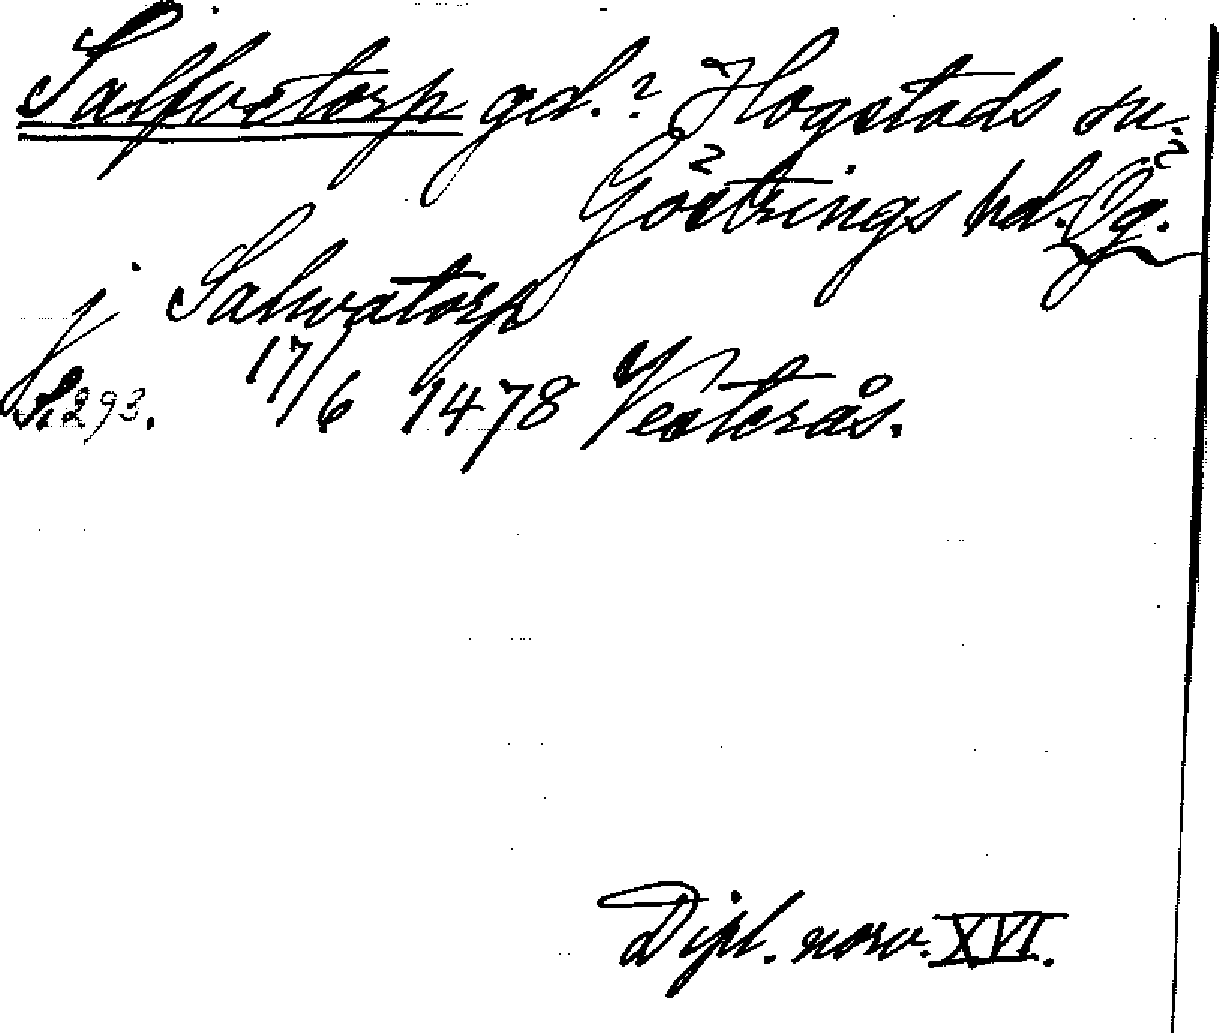 Salfvetorp gd.? Hogstads sn.
Göstrings hd. Ög.
j Salwatorp
S. 293. 17/6 1478 Vesterås.
Dipl. norv. XVI.